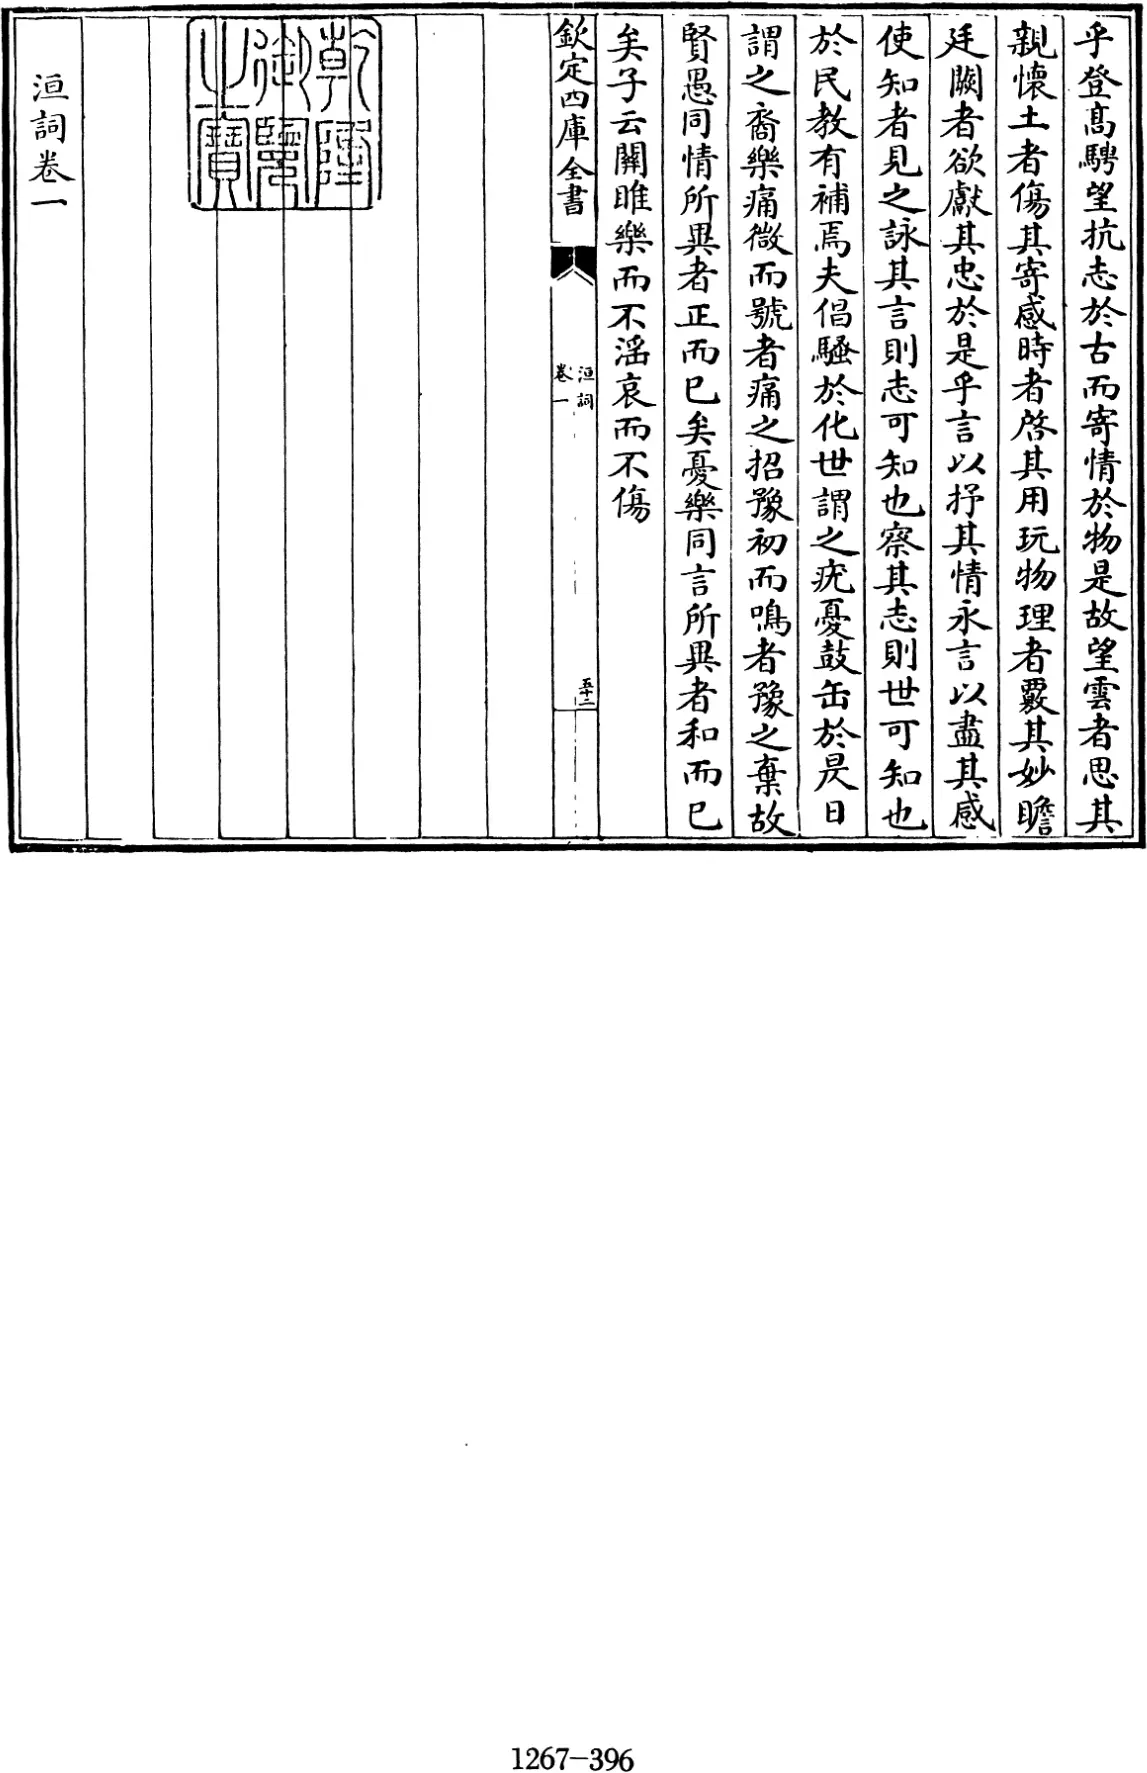 乎登髙騁望抗志於古而寄情於物是故望雲者思其
親懷土者傷其寄感時者啓其用玩物理者覈其妙瞻
廷闕者欲獻其忠於是乎言以抒其情永言以盡其感
使知者見之詠其言則志可知也察其志則世可知也
於民教有補焉夫倡騷於化世謂之疣憂鼓缶於昃日
謂之裔樂痛微而號者痛之招豫初而鳴者豫之棄故
賢愚同情所異者正而已矣憂樂同言所異者和而已
矣子云關雎樂而不滛哀而不傷
欽定四庫全書
洹詞
卷一
五十二
乾隆
御覽
之寶
洹詞卷一
1267-396